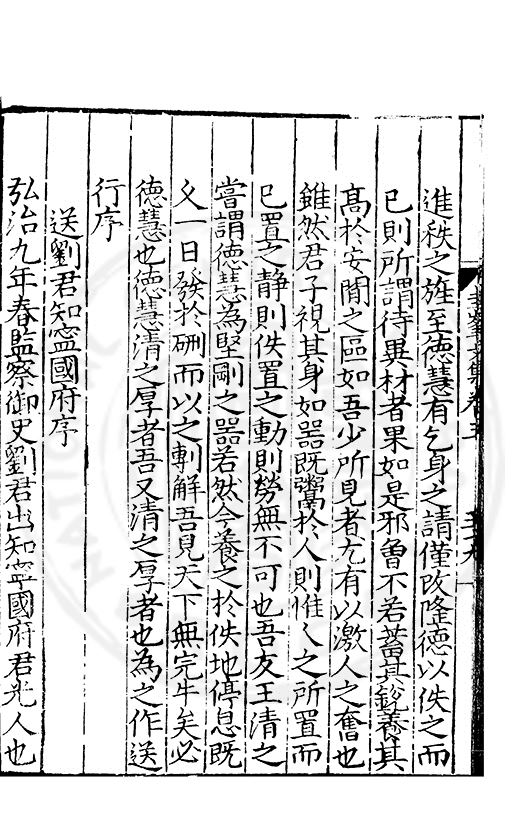 進秩之旌至德慧有乞身之請僅改隆德以佚之而
已則所謂待異材者果如是邪曾不若蓄其銳養其
髙於安閒之區如吾少所見者尤有以激人之奮也
雖然君子視其身如器既鬻於人則惟人之所置而
已置之静則佚置之動則勞無不可也吾友王清之
嘗謂德慧為堅剛之器若然今養之於佚地停息既
久一日發於硎而以之剸解吾見天下無完牛矣必
德慧也德慧清之厚者吾又清之厚者也為之作送
行序
送劉君知寧國府序
弘治九年春監察御史劉君出知寧國府君先人也